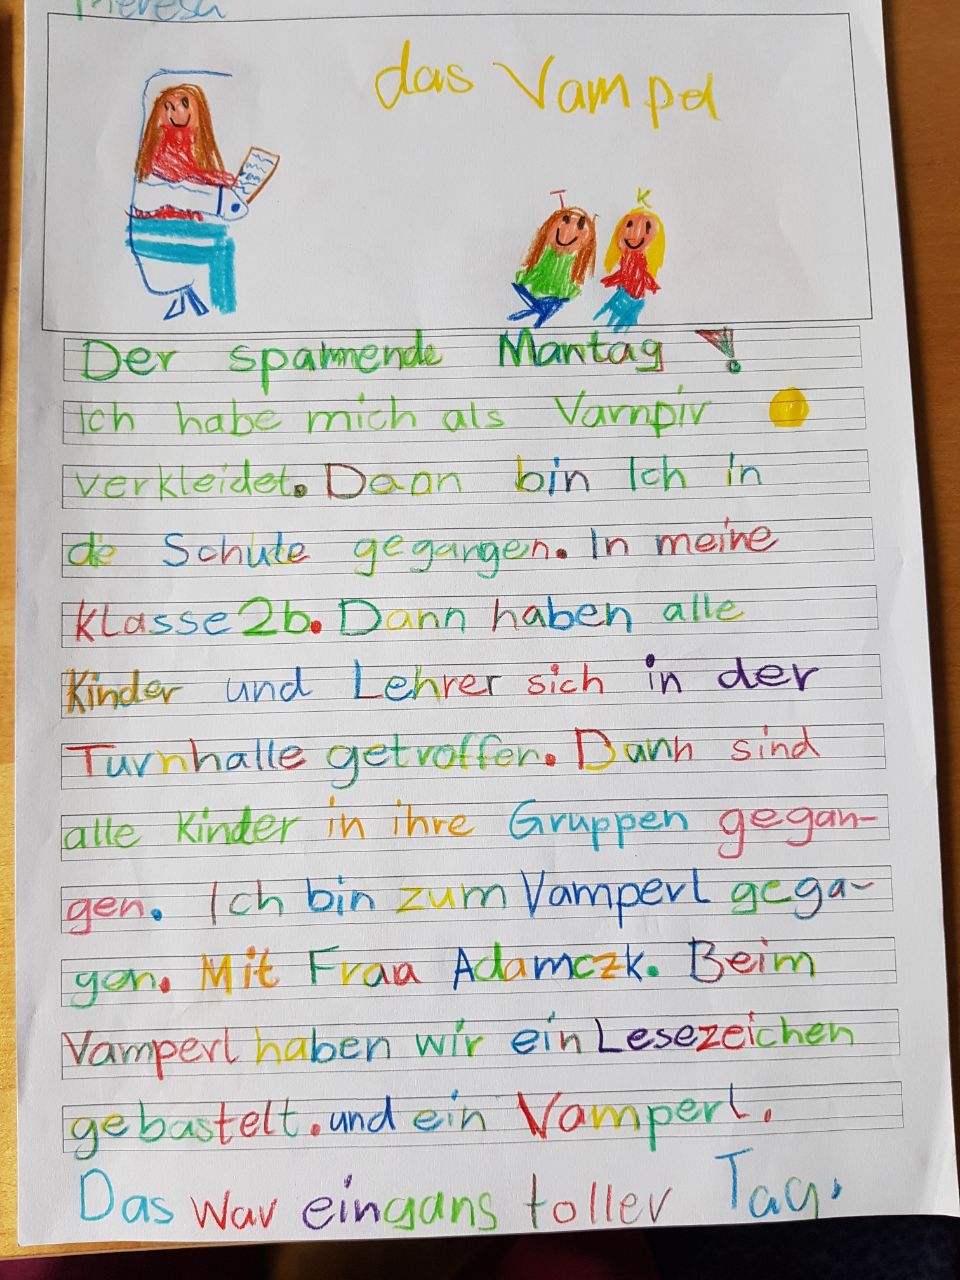 Theresa
das Vampel
T K
Der spannende Mantag!
Ich habe mich als Vampir
verkleidet. Daan bin Ich in
de Schule gegangen. In meine
Klasse 2b. Dann haben alle
Kinder und Lehrer sich in der
Turnhalle getroffen. Dann sind
alle Kinder in ihre Gruppen gegan-
gen. Ich bin zum Vamperl gega-
gen. Mit Fraa Adamczk. Beim
Vamperl haben wir ein Lesezeichen
gebastelt. und ein Vamperl.
Das war ein gans toller Tag.